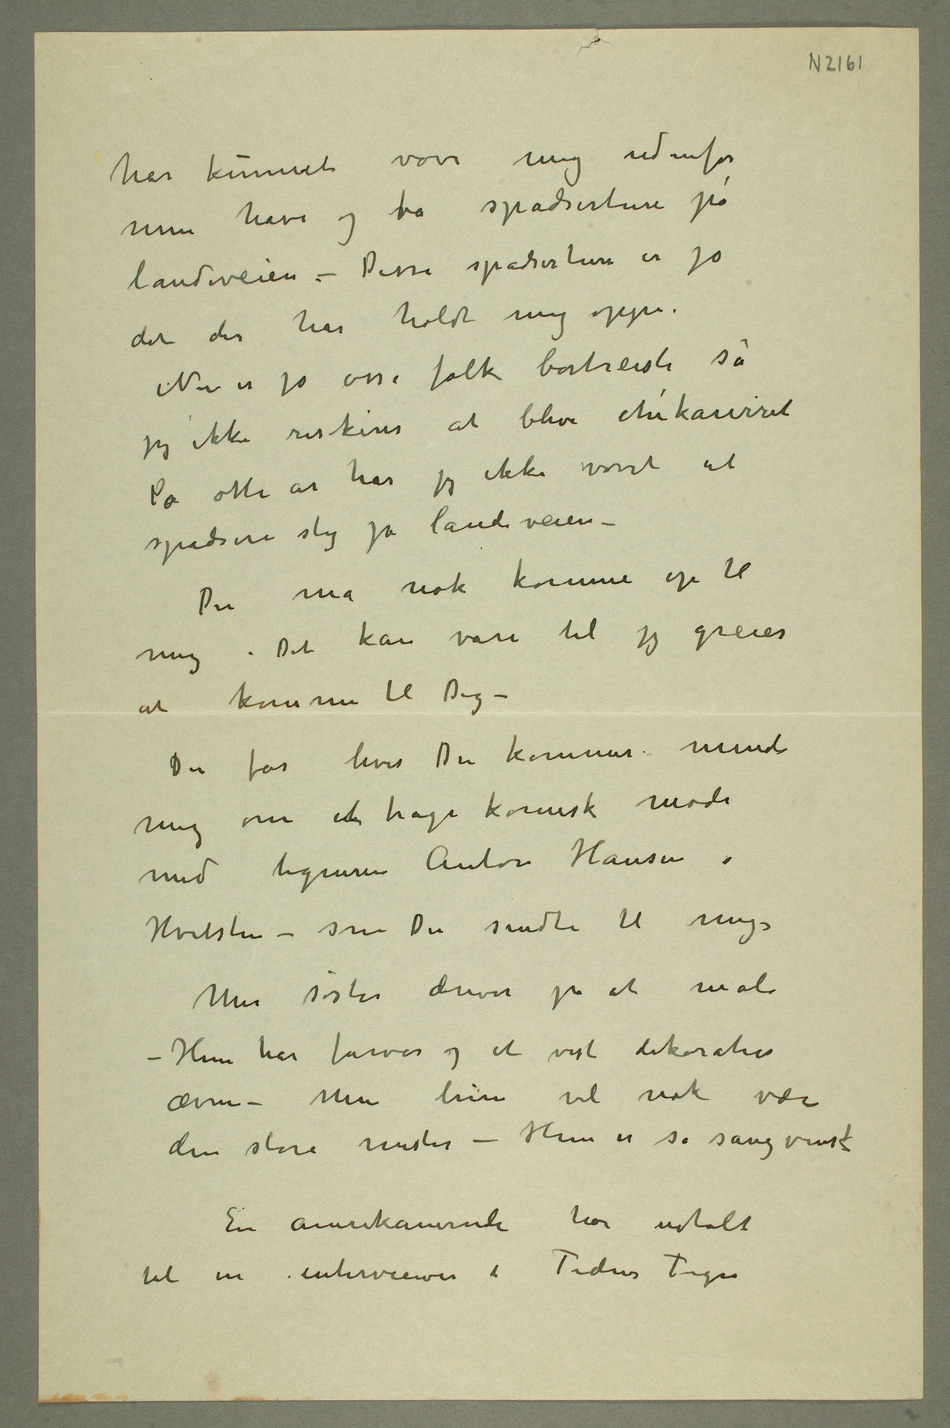 N 2161
har kunnet vove mig udenfor
min have og ta spadserture på
landeveien – Disse spadserture er jo
det der har holdt mig oppe.
Nu er jo osse folk bortreiste så
jeg ikke riskerer at blive chikaneret
På otte år har jeg ikke vovet at
spadsere slig på landeveien –
Du må nok komme op til
mig . Det kan være til jeg greier
at komme til Dig –
Du får hvis Du kommer minde
mig om et tragikomisk møde
med tegneren Anton Hansen i
Hvitsten – som Du sendte til mig
Min søster driver på at male
– Hun har farver og et vist dekorativ
ævne – Men hun vil nok være
den store mester – Hun er så sangvinsk
En amerikanerinde har udtalt
til en interviewer i Tidens Tegn